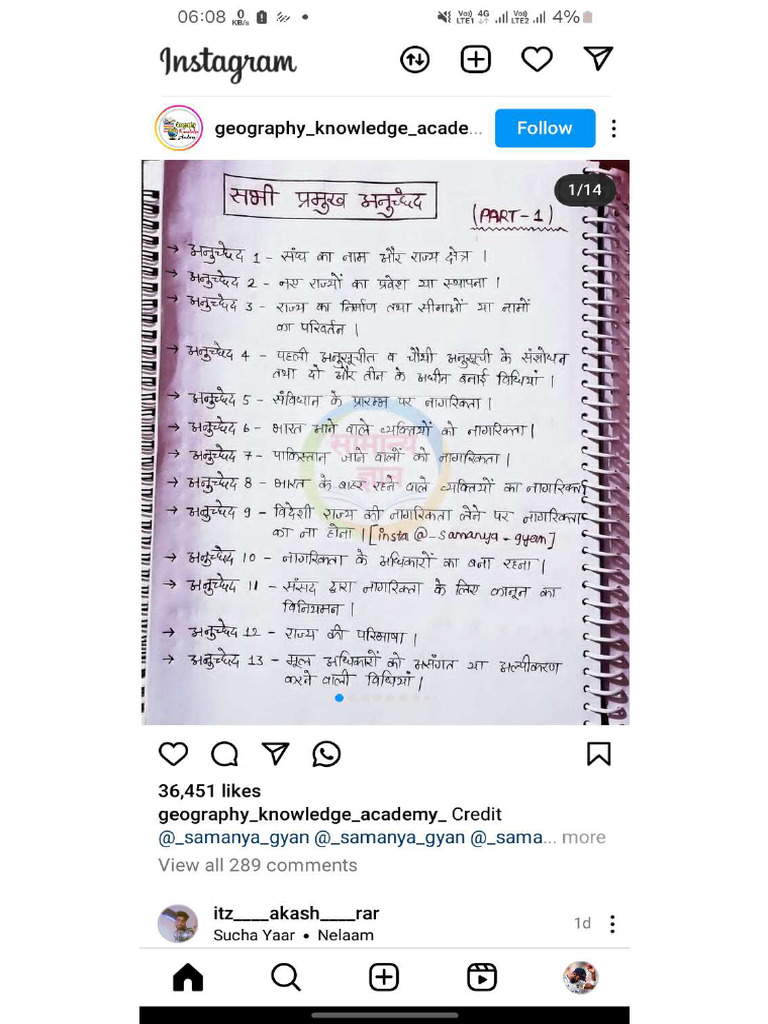 06:08 0 KB/s Vo)) LTE1 4G Vo)) LTE2 4%
Instagram
geography_knowledge_acade... Follow
1/14
सभी प्रमुख अनुच्छेद
(PART-1)
→ अनुच्छेद 1 - संघ का नाम और राज्य क्षेत्र |
→ अनुच्छेद 2 - नए राज्यों का प्रवेश या स्थापना |
→ अनुच्छेद 3 - राज्य का निर्माण तथा सीमाओं या नामों
का परिवर्तन |
→ अनुच्छेद 4 - पहली अनुसूचीत व चौथी अनुसूची के संशोधन
तथा दो और तीन के अधीन बनाई विधियां |
→ अनुच्छेद 5 - संविधान के प्रारम्भ पर नागरिकता |
→ अनुच्छेद 6 - भारत आने वाले व्यक्तियों को नागरिकता |
सामान्य
→ अनुच्छेद 7 - पाकिस्तान जाने वालों को नागरिकता |
ज्ञान
→ अनुच्छेद 8 - भारत के बाहर रहने वाले व्यक्तियों का नागरिकता
→ अनुच्छेद 9 - विदेशी राज्य की नागरिकता लेने पर नागरिकता
का ना होता | [insta @_samanya_gyan]
→ अनुच्छेद 10 - नागरिकता के अधिकारों का बना रहना |
→ अनुच्छेद 11 - संसद द्वारा नागरिकता के लिए कानून का
विनियमन |
→ अनुच्छेद 12 - राज्य की परिभाषा |
→ अनुच्छेद 13 - मूल अधिकारों को असंगत या अल्पीकरण
करने वाली विधियां |
36,451 likes
geography_knowledge_academy_ Credit
@_samanya_gyan @_samanya_gyan @_sama... more
View all 289 comments
itz____akash____rar
1d
Sucha Yaar • Nelaam